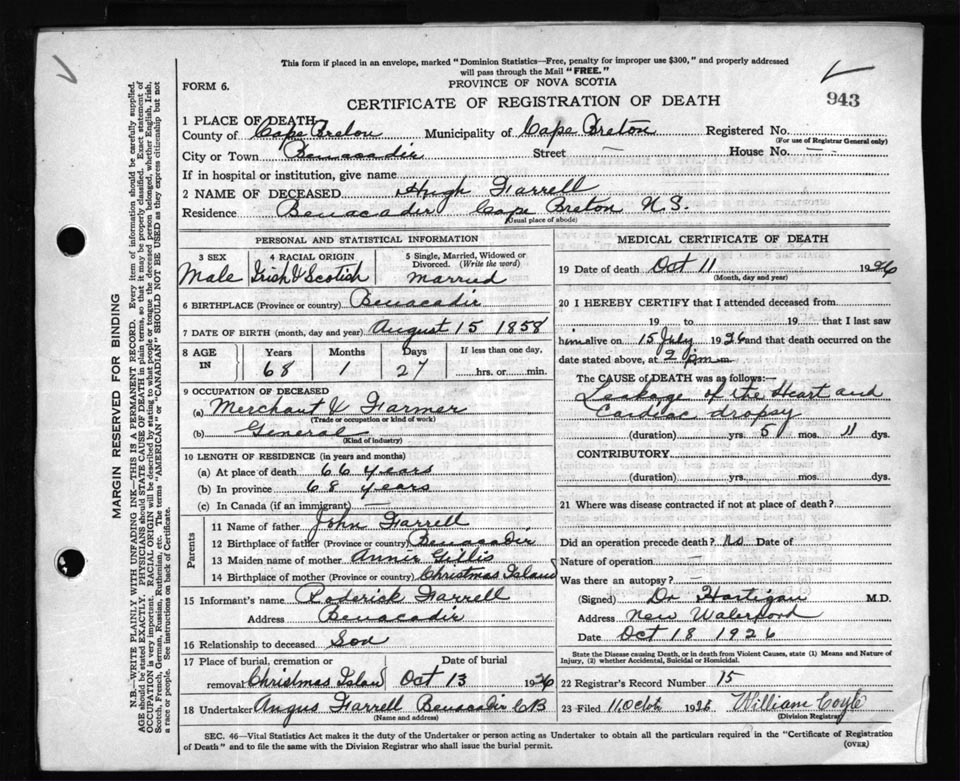 This form if placed in an envelope, marked "Dominion Statistics—Free, penalty for improper use $300," and properly addressed
will pass through the Mail "FREE."
FORM 6.
PROVINCE OF NOVA SCOTIA
CERTIFICATE OF REGISTRATION OF DEATH
943
1 PLACE OF DEATH
County of Cape Breton Municipality of Cape Breton Registered No.
(For use of Registrar General only)
City or Town Benacadie Street — House No. —
If in hospital or institution, give name
2 NAME OF DECEASED Hugh Farrell
Residence Benacadie Cape Breton N.S.
(Usual place of abode)
PERSONAL AND STATISTICAL INFORMATION
3 SEX
Male
4 RACIAL ORIGIN
Irish & Scotish
5 Single, Married, Widowed or
Divorced. (Write the word)
Married
6 BIRTHPLACE (Province or country) Benacadie
7 DATE OF BIRTH (month, day and year) August 15 1858
8 AGE IN
Years Months Days If less than one day,
68 1 27 hrs. or min.
9 OCCUPATION OF DECEASED
(a) Merchant & Farmer
(Trade or occupation or kind of work)
(b) General
(Kind of industry)
10 LENGTH OF RESIDENCE (in years and months)
(a) At place of death 66 years
(b) In province 68 years
(c) In Canada (if an immigrant) —
Parents
11 Name of father John Farrell
12 Birthplace of father (Province or country) Benacadie
13 Maiden name of mother Annie Gillis
14 Birthplace of mother (Province or country) Christmas Island
15 Informant's name Roderick Farrell
Address Benacadie
16 Relationship to deceased Son
17 Place of burial, cremation or Date of burial
removal Christmas Island Oct 13 1926
18 Undertaker Angus Farrell Benacadie CB
(Name and address)
MEDICAL CERTIFICATE OF DEATH
19 Date of death Oct 11 1926
(Month, day and year)
20 I HEREBY CERTIFY that I attended deceased from
19 to 19 that I last saw
him alive on 15 July 1926 and that death occurred on the
date stated above, at 2 pm m.
The CAUSE of DEATH was as follows:
Leakage of the Heart and
Cardiac dropsy
(duration) yrs. 5 mos. 11 dys.
CONTRIBUTORY
(duration) yrs. mos. dys.
21 Where was disease contracted if not at place of death?
Did an operation precede death? No Date of
Nature of operation —
Was there an autopsy? —
(Signed) Dr Hartigan M.D.
Address New Waterford
Date Oct 18 1926
State the Disease causing Death, or in death from Violent Causes, state (1) Means and Nature of
Injury, (2) whether Accidental, Suicidal or Homicidal.
22 Registrar's Record Number 15
23 Filed 11 Octob 1926 William Coyle
(Division Registrar)
SEC. 46—Vital Statistics Act makes it the duty of the Undertaker or person acting as Undertaker to obtain all the particulars required in the "Certificate of Registration
of Death" and to file the same with the Division Registrar who shall issue the burial permit. (OVER)
MARGIN RESERVED FOR BINDING
N.B.—WRITE PLAINLY WITH UNFADING INK—THIS IS A PERMANENT RECORD. Every item of information should be carefully supplied.
AGE should be stated EXACTLY. PHYSICIANS should STATE CAUSE OF DEATH in plain terms, so that it may be properly classified. Exact statement of
OCCUPATION is very important. RACIAL ORIGIN will be described by stating to what people or tongue the deceased person belonged, whether English, Irish,
Scotch, French, German, Russian, Ruthenian, etc. The terms "AMERICAN" or "CANADIAN" SHOULD NOT BE USED as they express citizenship but not
a race or people. See instructions on back of Certificate.